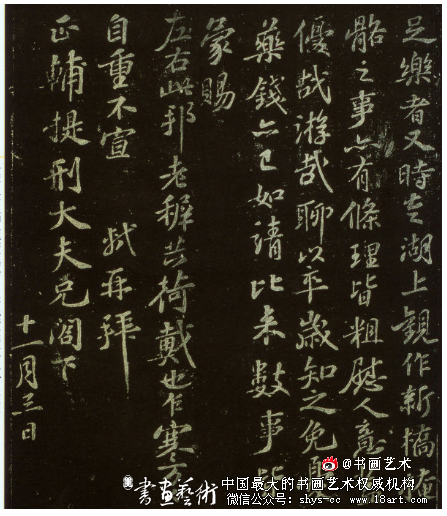 足樂者又時走湖上觀作新橋
骼之事亦有條理皆粗慰人意
優哉游哉聊以卒歲知之免憂
藥錢亦已如請比来數事皆
蒙賜
左右此邦老穉共荷戴也乍寒万
自重不宣 軾再拜
正輔提刑大夫兄閣下
十一月三日
@书画艺术
書画藝術
中国最大的书画艺术权威机构
微信公众号: shys-cc www.18art.com